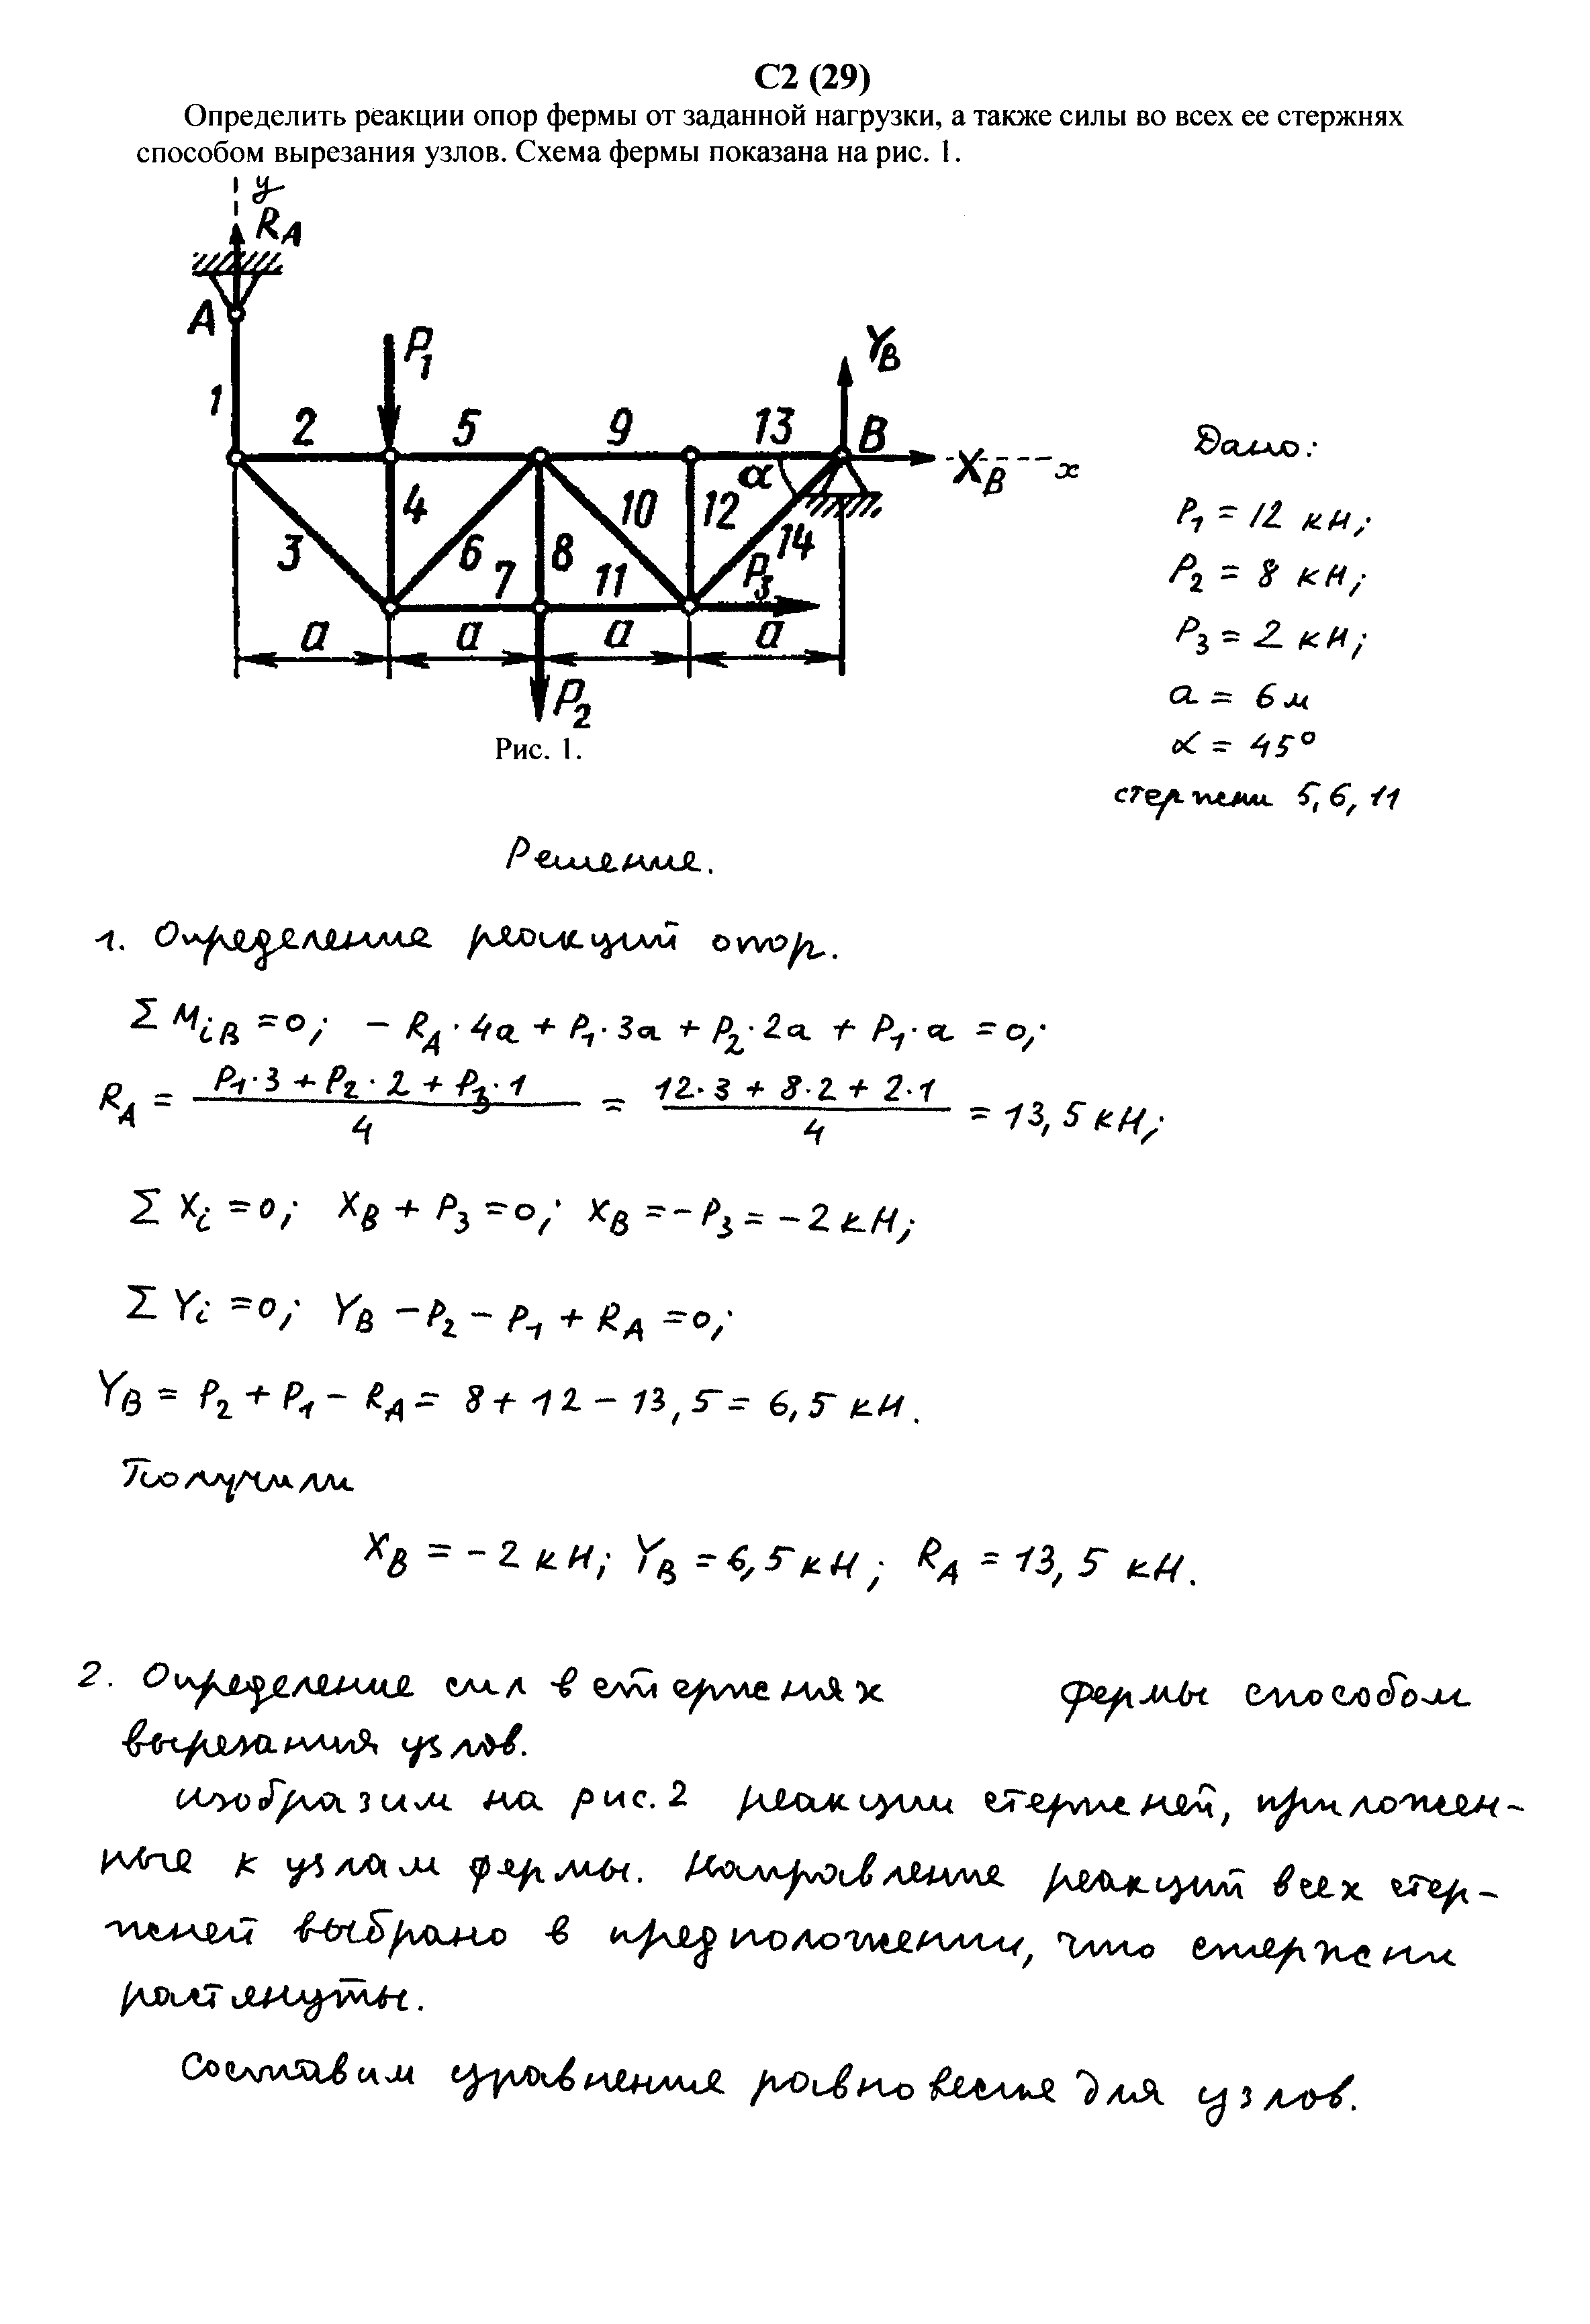 С2 (29)
Определить реакции опор фермы от заданной нагрузки, а также силы во всех ее стержнях
способом вырезания узлов. Схема фермы показана на рис. 1.
y
R_A
A
P_1
Y_B
1
2
5
9
13
B
X_B
x
α
3
4
6
7
8
10
11
12
14
P_3
a
a
a
a
P_2
Рис. 1.
Дано:
P_1 = 12 кН;
P_2 = 8 кН;
P_3 = 2 кН;
a = 6 м
α = 45°
стержни 5, 6, 11
Решение.
1. Определение реакций опор.
Σ M_iB = 0; - R_A · 4a + P_1 · 3a + P_2 · 2a + P_1 · a = 0;
R_A = (P_1 · 3 + P_2 · 2 + P_3 · 1) / 4 = (12 · 3 + 8 · 2 + 2 · 1) / 4 = 13,5 кН;
Σ X_i = 0; X_B + P_3 = 0; X_B = - P_3 = - 2 кН;
Σ Y_i = 0; Y_B - P_2 - P_1 + R_A = 0;
Y_B = P_2 + P_1 - R_A = 8 + 12 - 13,5 = 6,5 кН.
Получили
X_B = - 2 кН; Y_B = 6,5 кН; R_A = 13,5 кН.
2. Определение сил в стержнях фермы способом
вырезания узлов.
Изобразим на рис. 2 реакции стержней, приложен-
ные к узлам фермы. Направление реакций всех стер-
жней выбрано в предположении, что стержни
растянуты.
Составим уравнение равновесия для узлов.